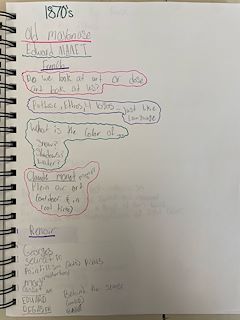 1870's
Old mayonase
Edward MANET
French
Do we look at art or dose
art look at us?
Pathos, Ethos, & logos
just like
language
What is the color of ...
Snow?
Shadows?
water?
Claude monet
Plein air art
(outdoor & in
real time)
Renoir
Georges
seurat
Pointillism
Mary
EDWARD
DEGAS
Behind the